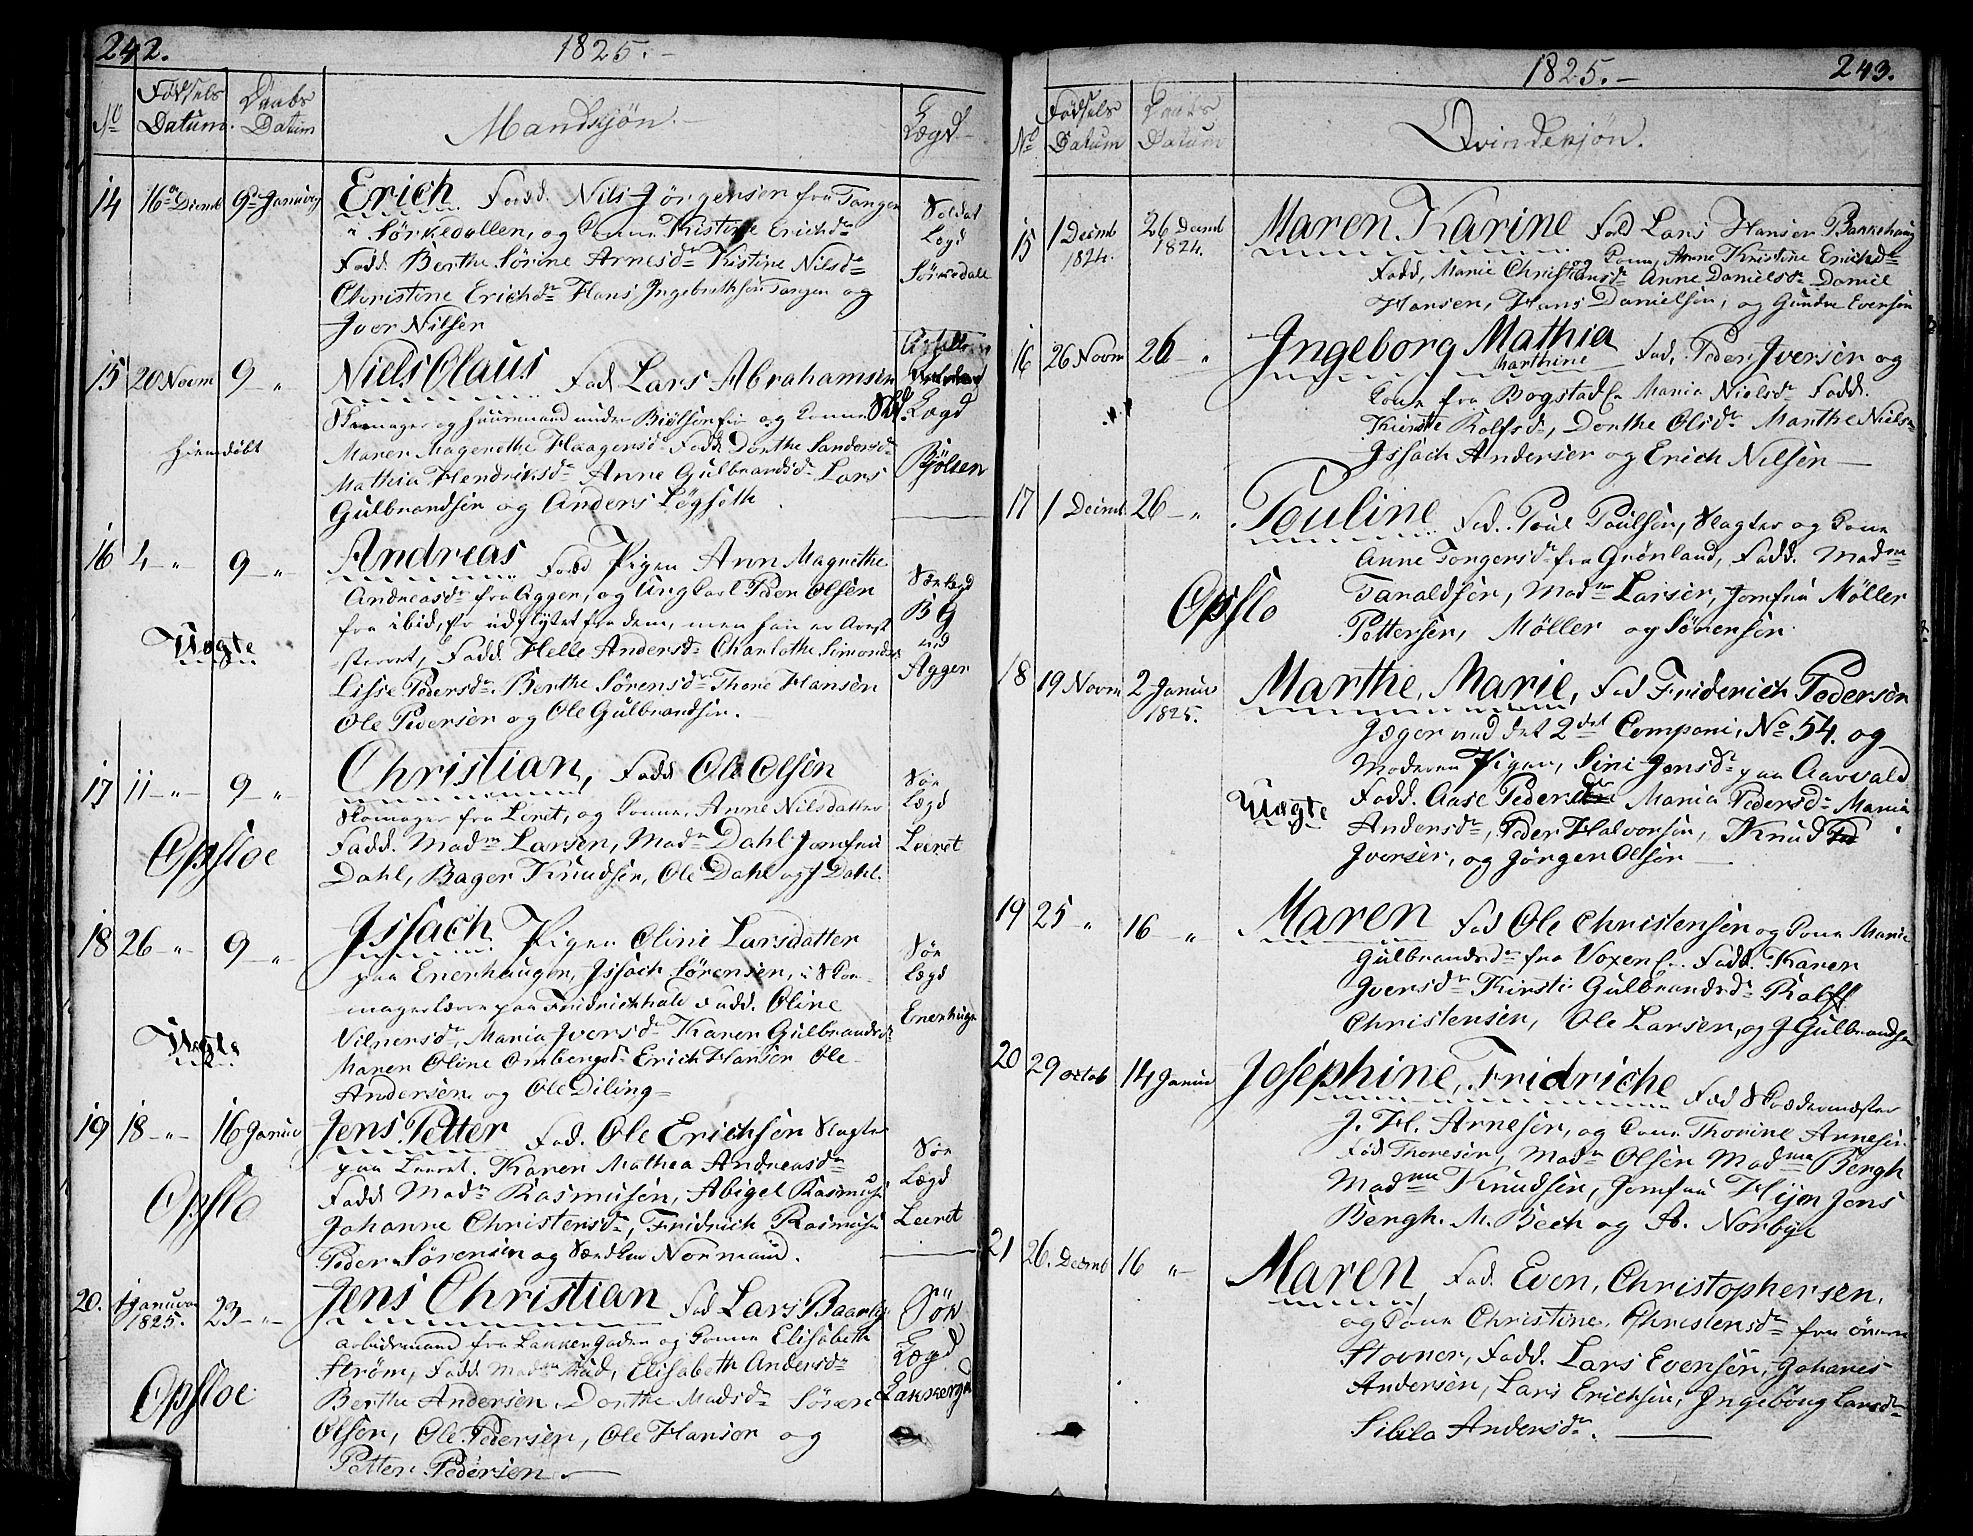 242.
1825.-
No
Fødsels Datum.
Daabs Datum
Mandkjøn.-
Lægd
14
16 Decmb
9 Januarij
Erich Fødd. Nils Jörgensen fra Tangen
i Sørkedallen, og Konne Kistine Erichsd
Fadd. Berthe Sörine Arnesd Kistine Nilsd
Christine Erichsd Hans Ingebrethsen Tangen og
Iver Nilsen
Soldat
Legd
Sörkedall
15
20 Novm
9 "
Niels Olaus Fød Lars Abrahamsen
Skomager og huusmand under Biölsen fir og Konne
Maren Magrethe Haagensd Fadd. Dorthe Sandersd
Mathia Hendrichsd Anne Gulbrandsd Lars
Gulbrandsen og Anders Løgseth
hiemdöbt
Lægd
Bjölsen
16
4 "
9 "
Andreas Fød Pigen Ann Magrethe
Andreasd fra Agger, og Ungkarl Peder Olsen
fra ibid, er udflyttet fra dem, men han er Arest
-steret, Fadd. Helle Andersd Charlothe Simonsd
Lisse Pedersd Berthe Sörensd Thore Hansen
Ole Pedersen og Ole Gulbrandsen.
Uægte
Agger
17
11 "
9 "
Christian, Fødd Ole Olsen
Skomager fra Leret, og Konne, Anne Nilsdatter
Fadd. Madm Larsen, Madm Dahl Jomfru
Dahl, Bager Knudsen, Ole Dahl og J Dahl.
Opsloe
Sör
Lægd
Leeret
18
26 "
9 "
Issach. Pigen Oline Larsdatter
paa Enerhaugen, Issach Sörensen, i Sko-
magerlære paa Fridrichhald Fadd. Oline
Vilnersd, Maria Iversd Karen Gulbrandsd
Maren Oline Ombergsd Erich Hansen Ole
Andersen og Ole Diling
Uægte
Sör
Lægd
Enerhug
19
18 "
16 Januar
Jens Petter Fød. Ole Erichsen Slagter
paa Leeret. Karen Mathea Andreasd
Fadd Madm Rasmusen, Abigel Rasmus
Johanne Christensd, Fridrich Rasmus
Peder Sörensen og Normand.
Opslo
Sör
Lægd
Leeret
20.
1 Januar
1825.
23 "
Jens Christian Fød Lars Baarby
arbeidsmand fra Lakkengaden og Konne Elisabeth
Ström, Fadd. Elisabeth Andersd
Berthe Andersen Dorthe Madsd Sören
Olsen, Ole Pedersen, Ole Hansen og
Petter Pedersen
Opsloe
Sör
Lægd
Lakkerga
1825.-
243.
No
Fødsels Datum
Daabs Datum
Qvindekjön.
15
1 Decmb
1824.
26 Decmb
1824.
Maren Karine Fød Lars Hansen Bakkehaug
og Kone, Anne Kristine Erichsd
Fadd, Marie Christiansd Anne Danielsd Daniel
Hansen, Hans Danielsen, og Gundre Evensen
16
26 Novm
26 "
Ingeborg Mathia
Marthine Fød, Peder Iversen og
Kone fra Bogstad Maria Nielsd Fadd.
Kirste Rolfsd, Dorthe Olsd Marthe Niels
Issach Andersen og Erich Nilsen
17
1 Decmb
26 "
Pouline. Fød. Poul Poulsen, Slagter og Kone
Anne Torgersd fra Grönland, Fadd. Madm
Taraldsen, Madm Larsen, Jomfru Möller
Pettersen, Möller og Sörensen
Opslo
18
19 Novm
2 Januar
1825.
Marthe, Marie, Fød Friderich Pedersen
Jæger ved det 2det Compani, No 54. og
Moderen Pigen, Sini Jensd paa Aarvold
Fadd. Aase Peders Maria Pedersd Maria
Andersd, Peder Halvorsen, Knud
Iversen, og Jörgen Olsen
Uægte
19
25 "
16 "
Maren Fød Ole Christensen og Kone Marie
Gulbrandsd fra Voxen Fadd. Karen
Iversd Kirsti Gulbrandsd Rolff
Christensen, Ole Larsen, og J Gulbrandsen
20
29 octob
14 Januar
Josephine, Fridriche Fød Skrædermæster
J. H. Arnesen, og Kone Thorine Arnesen
Fød Thoresen, Madm Olsen Madme Bergh
Madme Knudsen, Jomfru Hijm Jens
Bergh. M. Bech og A. Norbye
21
26. Decmb
16 "
Maren, Fød. Even, Christophersen,
og Kone Christine, Christensd fra övre
Stovner, Fadd. Lars Evensen, Johanes
Andersen, Lars Erichsen, Ingeborg Larsd
Sibila Andersd.